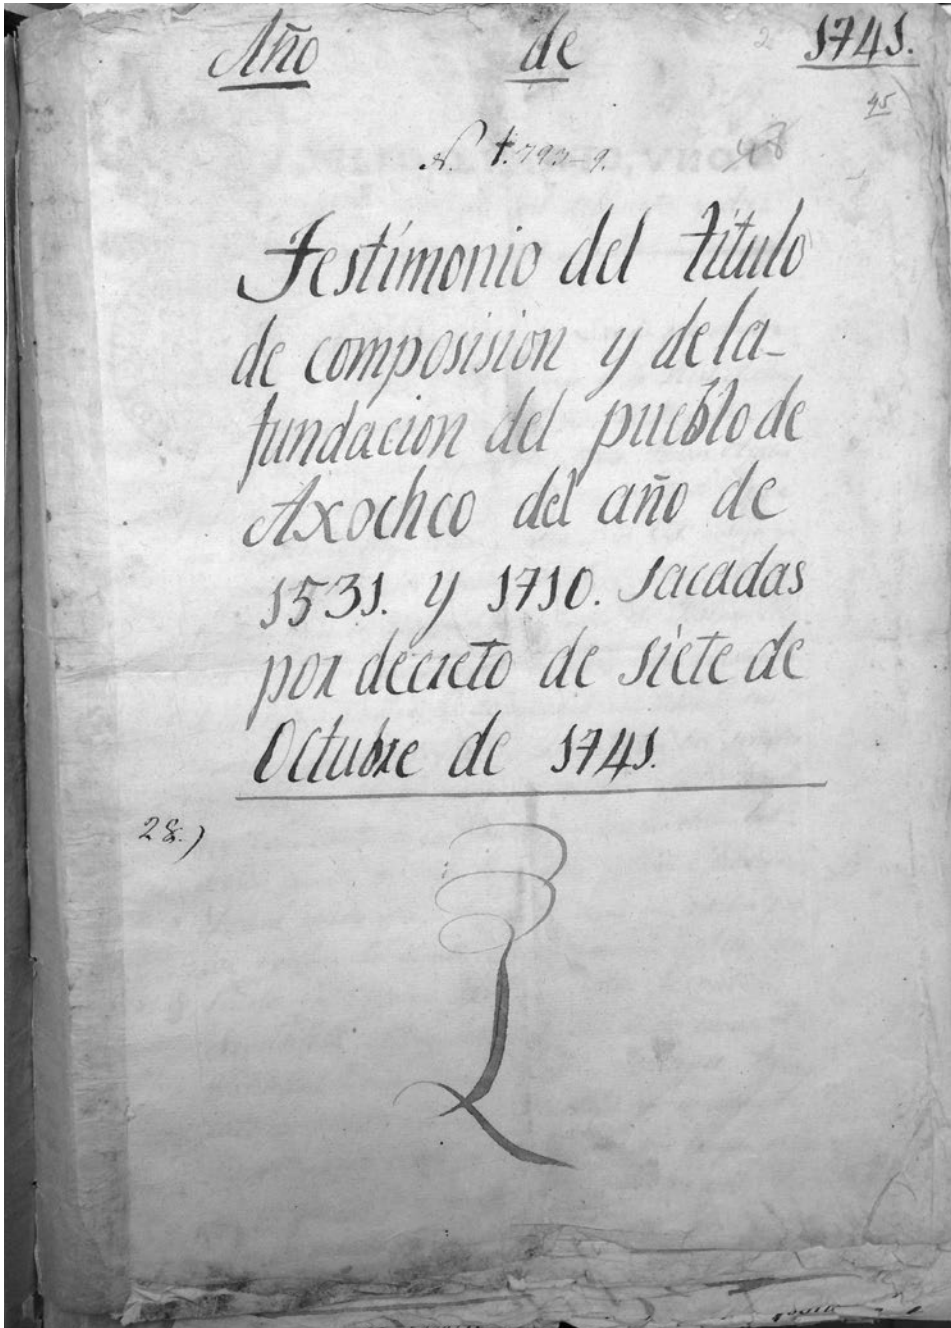 Año de 1741.
2
45
48
Testimonio del titulo
de composision y de la-
fundacion del pueblo de
Axochco del año de
1531. y 1710. sacadas
por decreto de siete de
Octubre de 1741.
28.)